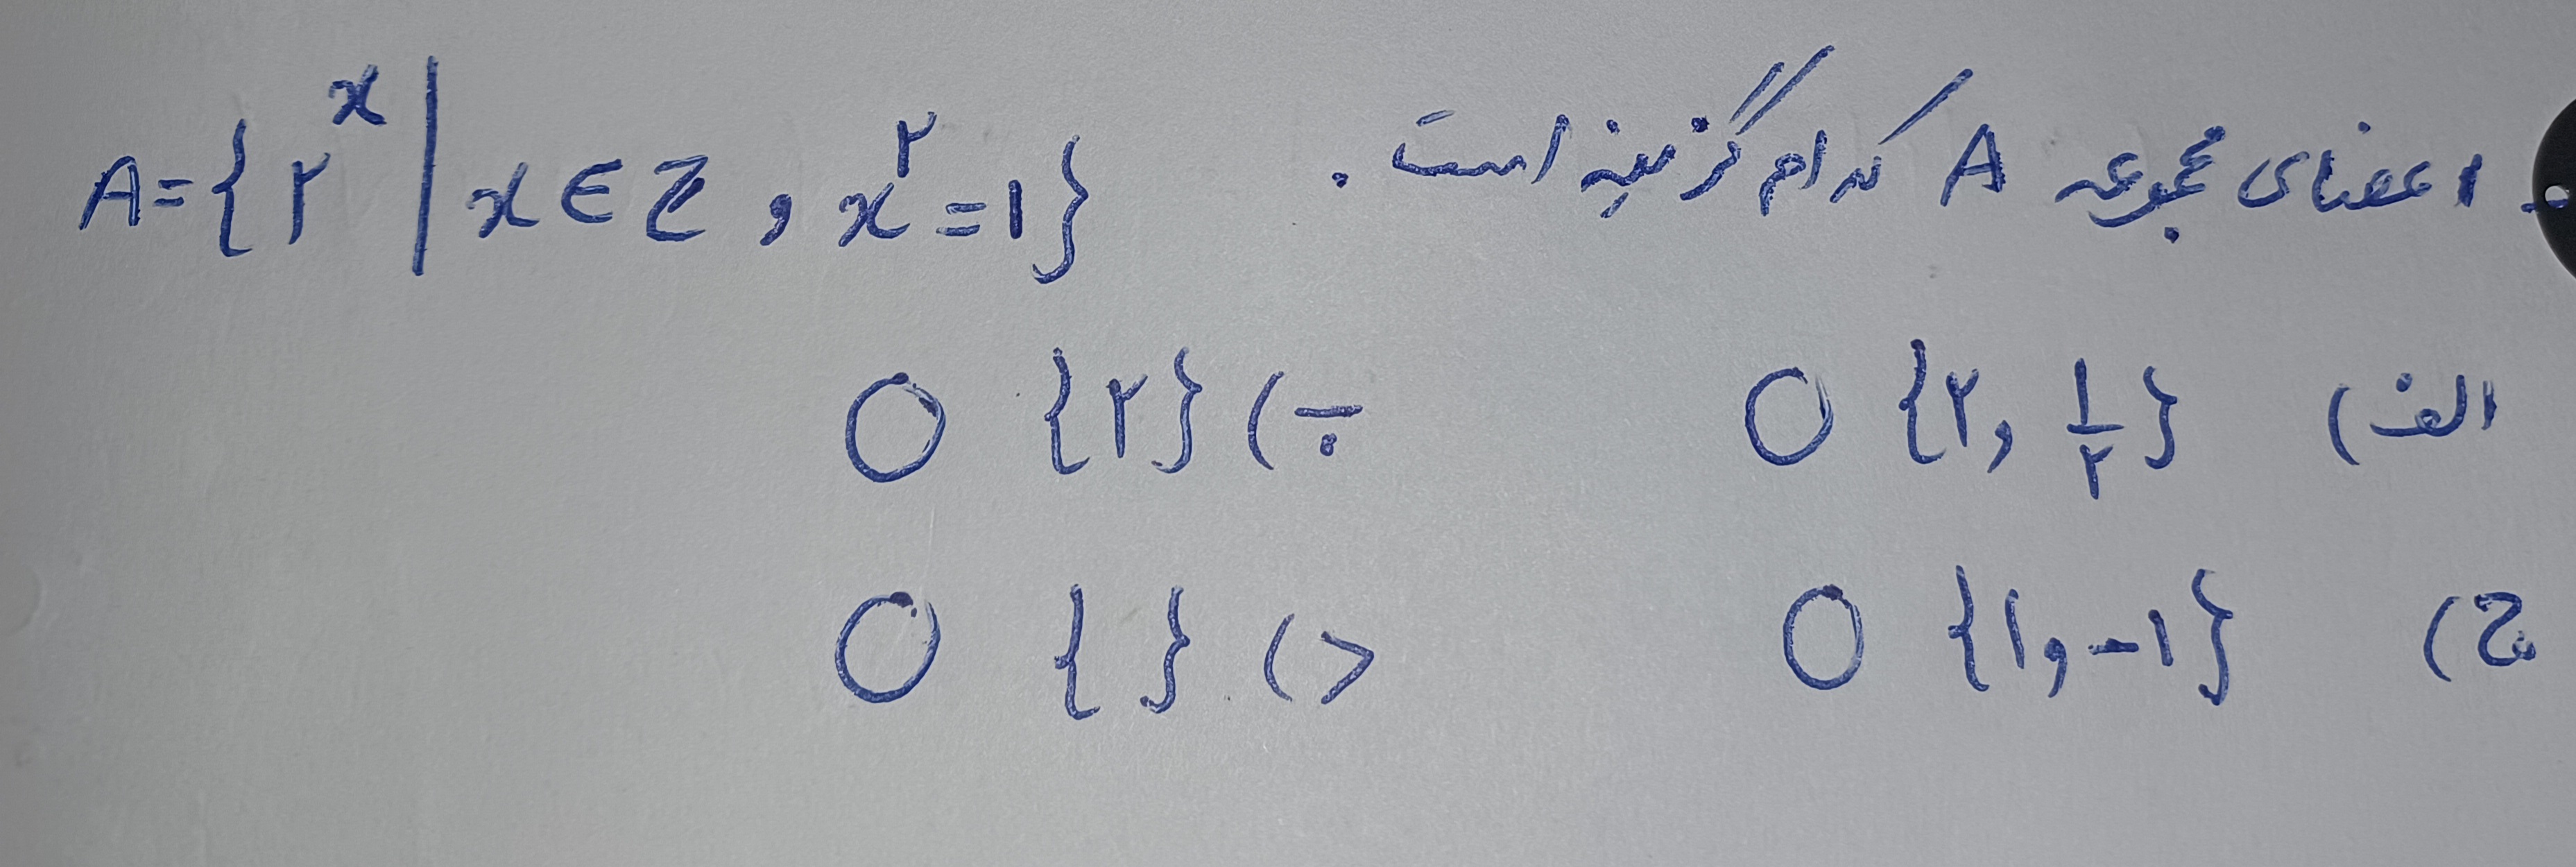 اعضای مجموعه A کدام گزینه است. A={۲^x | x∈Z , x^۲=۱}
الف) {۲, ۱/۲} ○ ب) {۲} ○
ج) {۱,-۱} ○ د) { } ○